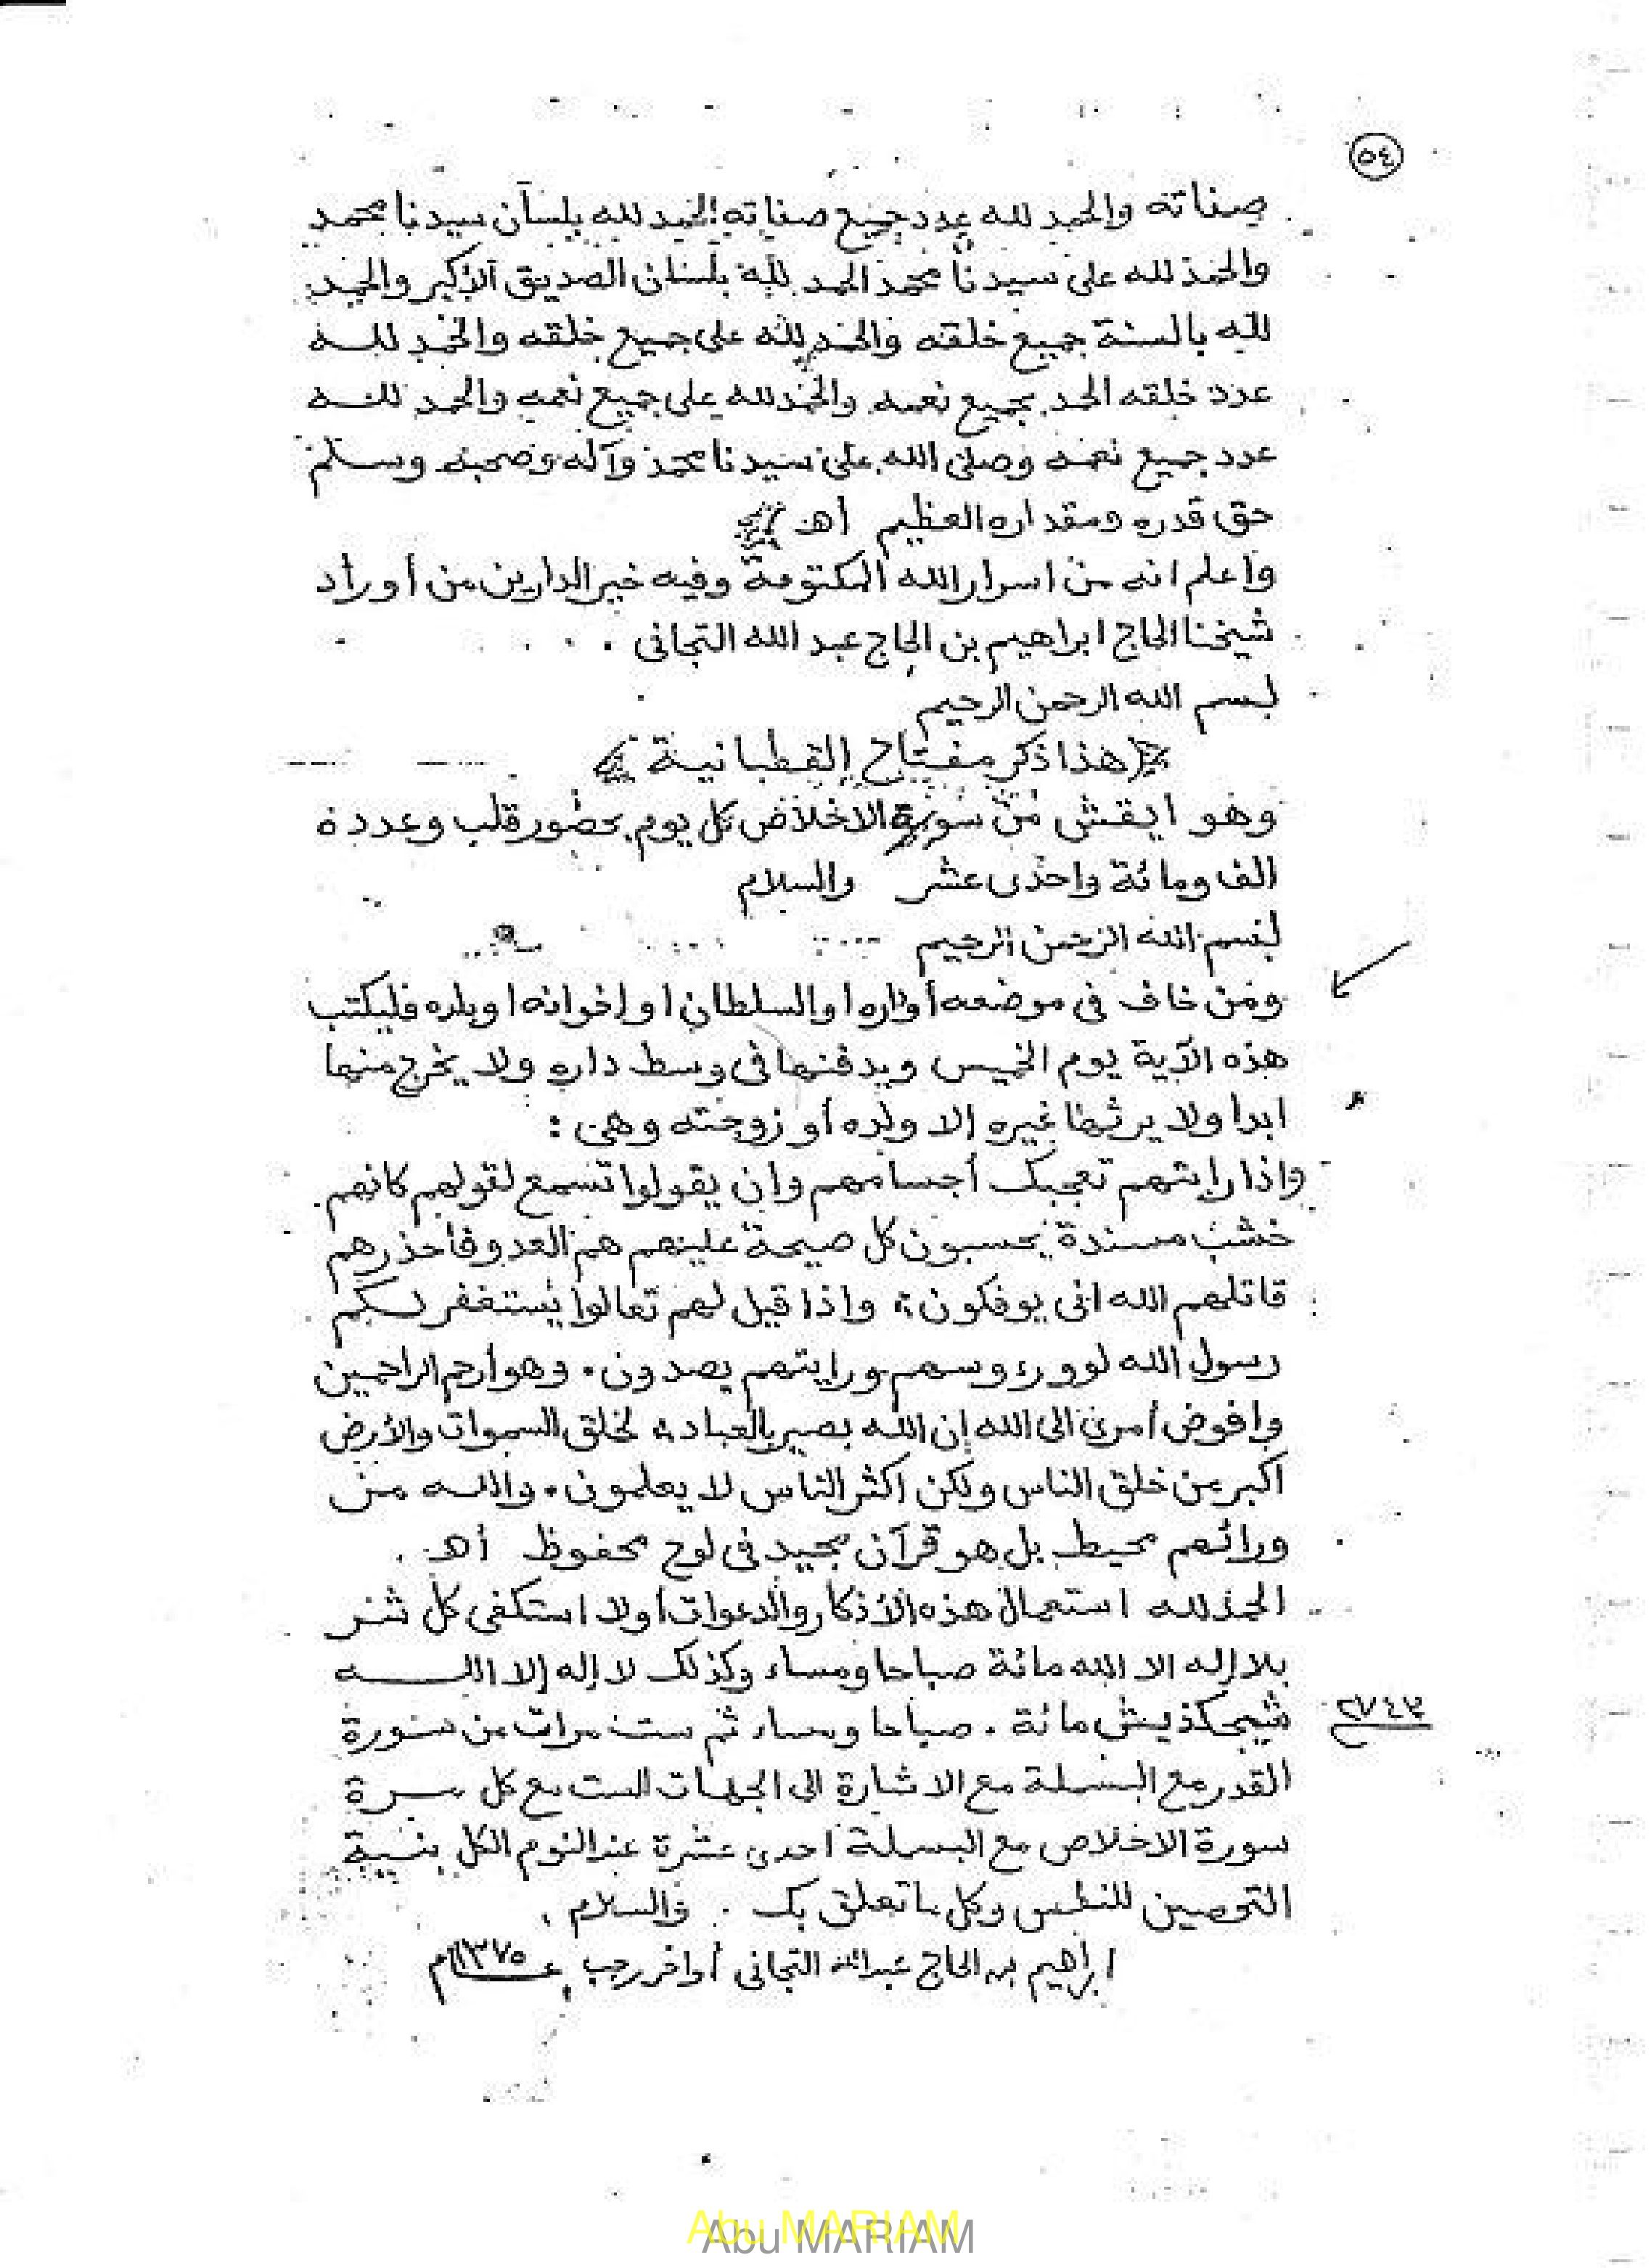 ٥٤
صفاته والحمد لله عدد جميع صفاته الحمد لله بلسان سيدنا محمد
والحمد لله على سيدنا محمد الحمد لله بلسان الصديق الأكبر والحمد
لله بالسنة جميع خلقه والحمد لله على جميع خلقه والحمد للـه
عدد خلقه الحمد بجميع نعمه والحمد لله على جميع نعمه والحمد للـه
عدد جميع نعمه وصلى الله على سيدنا محمد وآله وصحبه وسلم
حق قدره ومقداره العظيم أهـ
واعلم انه من اسرار الله المكتومة وفيه خير الدارين من أوراد
شيخنا الحاج ابراهيم بن الحاج عبد الله التجانى .
بسم الله الرحمن الرحيم
هذا ذكر مفتاح القطبانية
وهو ايقش من سورة الاخلاص كل يوم بحضور قلب وعدده
الف ومائة واحدى عشر والسلام
بسم الله الرحمن الرحيم
ومن خاف فى موضعه أو داره او السلطان او إخوانه او بلده فليكتب
هذه الآية يوم الخميس ويدفنها فى وسط داره ولا يخرج منها
ابدا ولا يرثها غيره إلا ولده أو زوجته وهى :
واذا رايتهم تعجبك أجسامهم وإن يقولوا تسمع لقولهم كانهم
خشب مسندة يحسبون كل صيحة عليهم هم العدو فاحذرهم
قاتلهم الله انى يوفكون ، واذا قيل لهم تعالوا يستغفر لكم
رسول الله لووا رءوسهم ورايتهم يصدون . وهو أرحم الراحمين
وافوض أمرى الى الله إن الله بصير بالعباد ، لخلق السموات والأرض
اكبر من خلق الناس ولكن اكثر الناس لا يعلمون . والله من
ورائهم محيط بل هو قرآن مجيد فى لوح محفوظ أهـ .
الحمد لله استعمال هذه الأذكار والدعوات أولا استكفى كل شر
بلا إله الا الله مائة صباحا ومساء وكذلك لا إله إلا اللـــه
مائة . صباحا ومساء ثم ست مرات من سورة
القدر مع البسملة مع الاشارة الى الجهات الست مع كل مرة
سورة الاخلاص مع البسملة احدى عشرة عند النوم الكل بنية
التحصين للنفس وكل ما تعلق بك . والسلام .
ابراهيم بن الحاج عبد الله التجانى أواخر رجب عام ١٣٧٥
Abu MARIAM